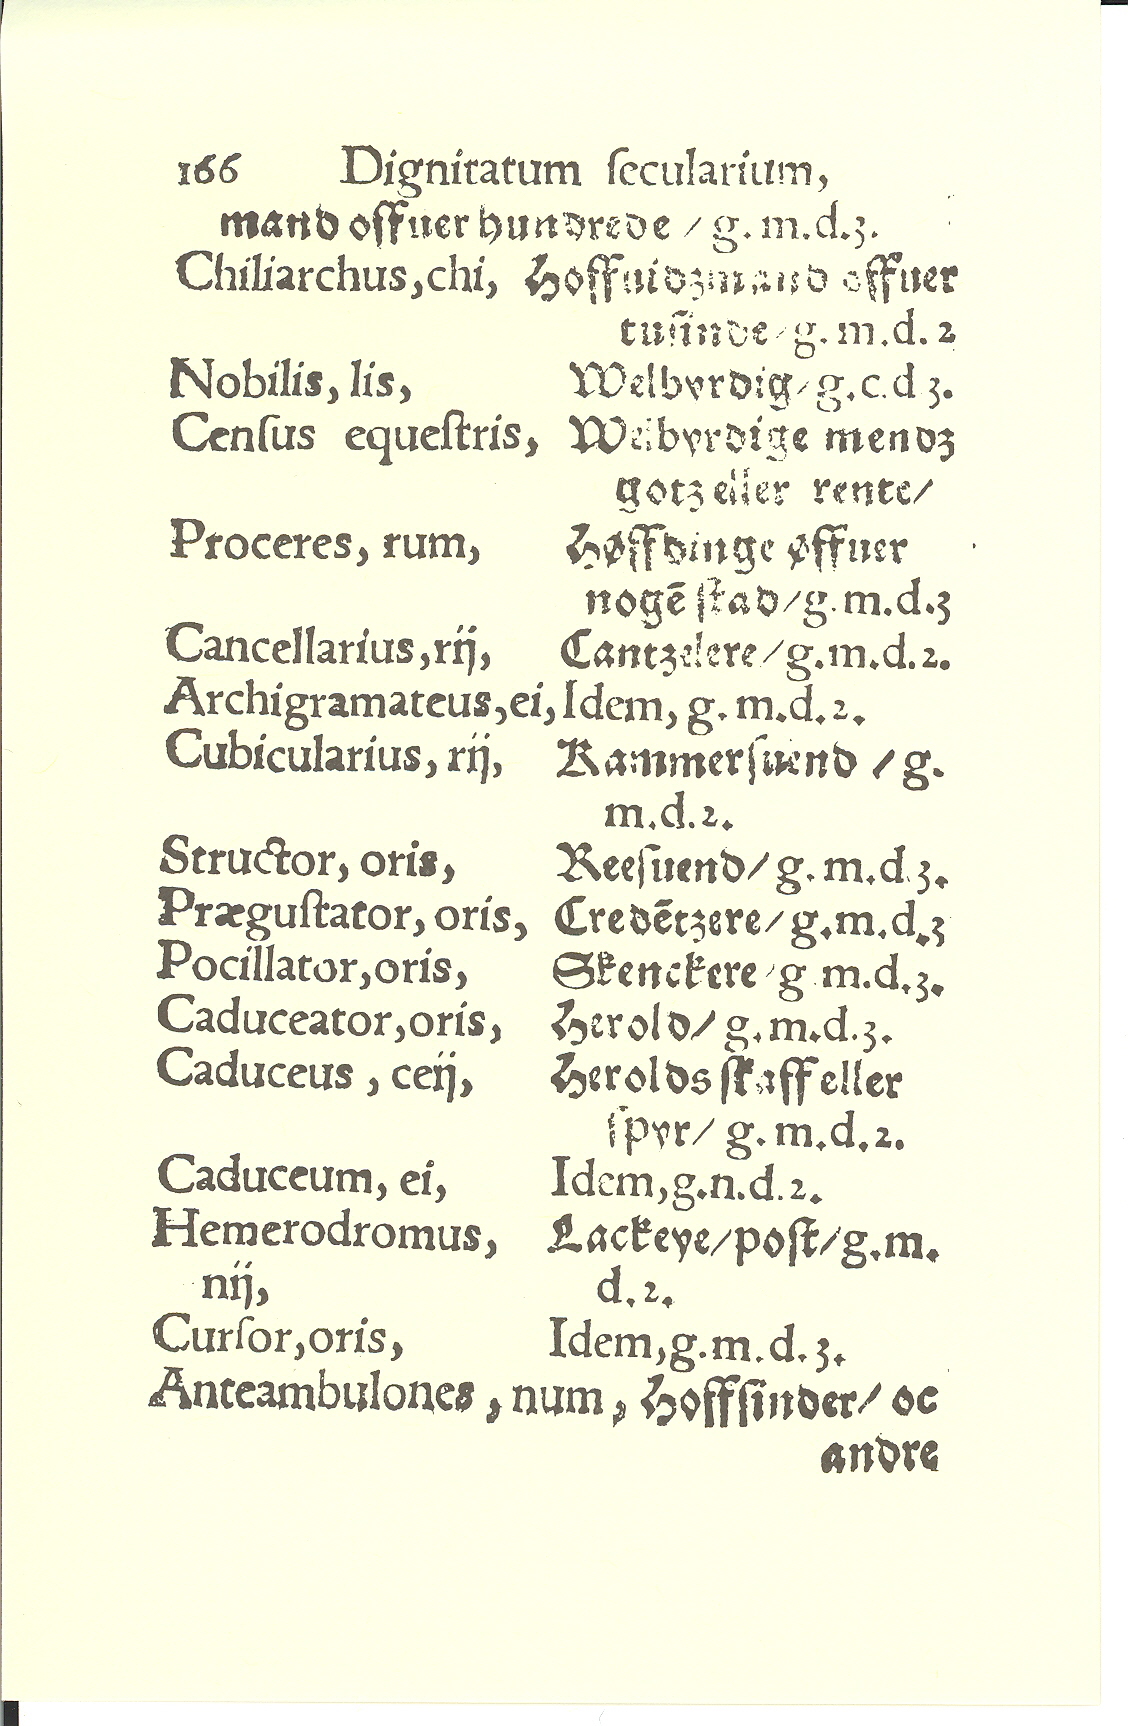 166 Dignitatum ſecularium,
mand offuer hundrede / g. m.d.3.
Chiliarchus, chi, Hoffuidzmand offuer
tuſinde / g. m.d. 2
Nobilis, lis, Welbyrdig / g.c.d 3.
Cenſus equeſtris, Welbyrdige mendz
gotz eller rente/
Proceres, rum, Høffdinge øffuer
nogē ſtad/g.m.d.3
Cancellarius, rij, Cantzelere / g.m.d.2.
Archigramateus, ei, Idem, g. m.d.2.
Cubicularius, rij, Kammerſuend / g.
m.d.2.
Structor, oris, Reeſuend/ g. m.d.3.
Prægustator, oris, Credētzere/ g.m.d.3
Pocillator, oris, Skenckere / g m.d.3.
Caduceator, oris, Herold/ g.m.d.3.
Caduceus, ceij, Herolds ſkaff eller
ſpyr/ g.m.d.2.
Caduceum, ei, Idem, g.n.d.2.
Hemerodromus, Lackeye/poſt/g.m.
nij, d.2.
Curſor, oris, Idem, g.m.d.3.
Anteambulones, num, Hoffſinder/ oc
andre